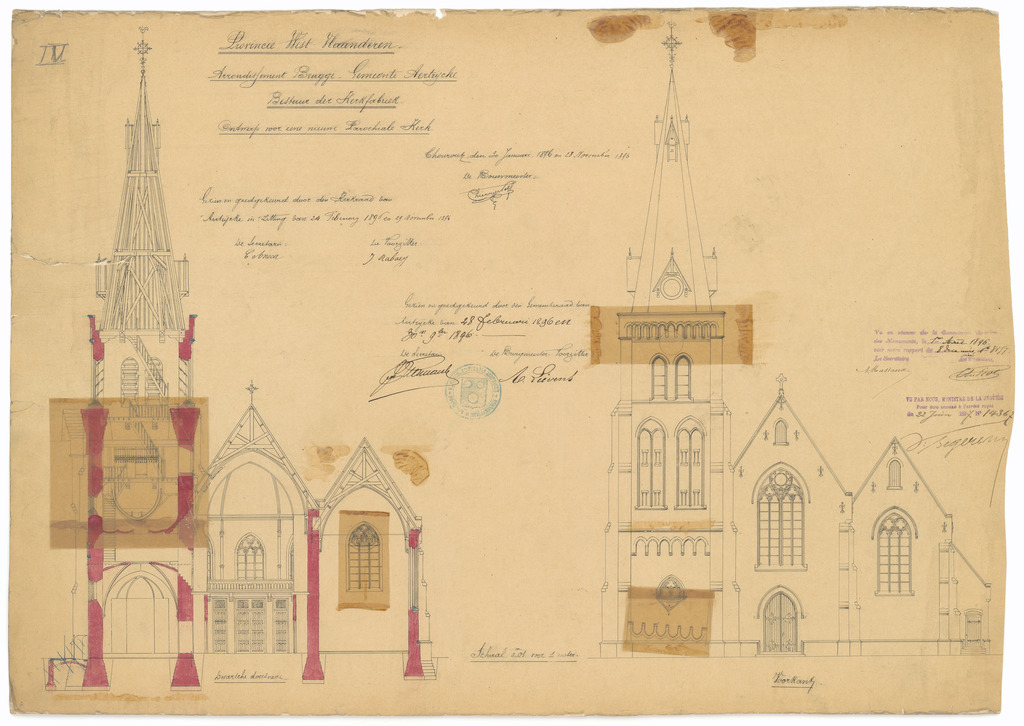 IV
Provincie West Vlaanderen.
Arrondissement Brugge. Gemeente Aertrycke
Bestuur der Kerkfabriek.
Ontwerp voor eene nieuwe Parochiale Kerk
Thourout den 20 Januari 1896 en 28 November 1896
De Bouwmeester,
Gezien en goedgekeurd door den Kerkraad van
Aertrycke in zitting van 24 February 1896 en 29 November 1896
De Secretaris De Voorzitter
Gezien en goedgekeurd door den Gemeenteraad van
Aertrycke van 28 februari 1896 en
30en 9ber 1896.
De Secretaris De Burgemeester Voorzitter
A. Lievens
Vu en séance de la Commission royale
des Monuments, le
suivant notre rapport de
Le Secrétaire Le Président,
VU PAR NOUS, MINISTRE DE LA JUSTICE
Pour être annexé à l'arrêté royal
du 22 Juin 1897 N° 14367
V. Begerem
Schaal 0.01 voor 1 meter
Dwarsche doorsnede.
Voorkant.